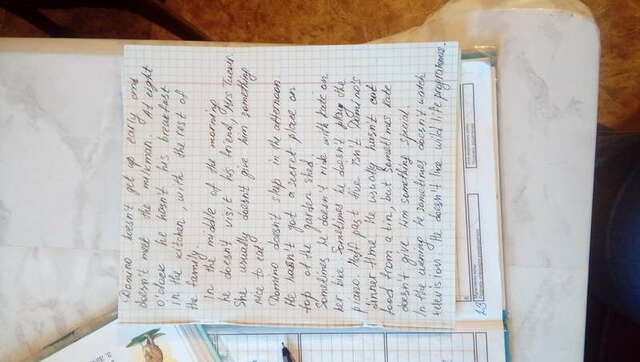 Domino doesn't get up early and
doesn't meet the milkman. At eight
o'clock he hasn't has breakfast
in the kitchen, with the rest of
the family.
In the middle of the morning
he doesn't visit his friend, Mrs Turner.
She usually doesn't give him something
nice to eat
Domino doesn't sleep in the afternoon
He hasn't got a secret place on
top of the garden shed
Sometimes he doesn't ride with Kate on
her bike. Sometimes he doesn't play the
piano. Half past five isn't Domino's
dinner-time. He usually hasn't cat
food from a tin, but sometimes Kate
doesn't give him something special.
In the evening he sometimes doesn't watch
television. He doesn't like wild life programmes.